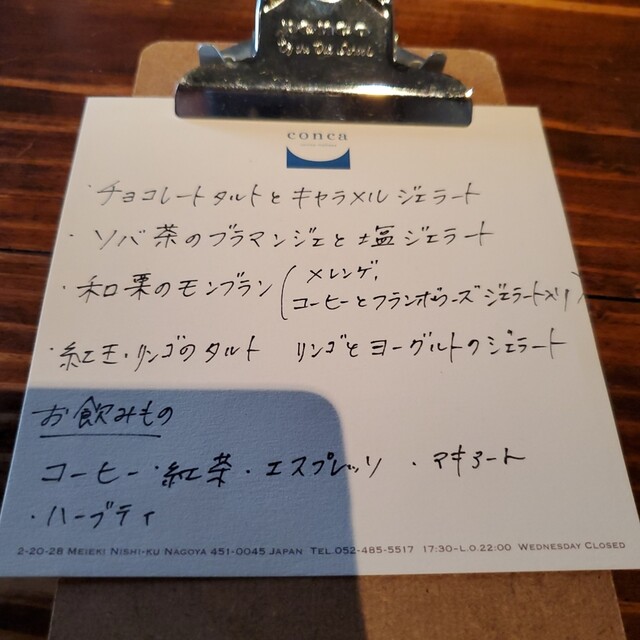 conca
・チョコレートタルトとキャラメルジェラート
・ソバ茶のブラマンジェと塩ジェラート
・和栗のモンブラン(メレンゲ,
コーヒーとフランボワーズジェラート入り)
・紅玉・リンゴのタルト リンゴとヨーグルトのジェラート
お飲みもの
コーヒー・紅茶・エスプレッソ・マキアート
・ハーブティ
2-20-28 MEIEKI NISHI-KU NAGOYA 451-0045 JAPAN TEL.052-485-5517 17:30-L.O.22:00 WEDNESDAY CLOSED